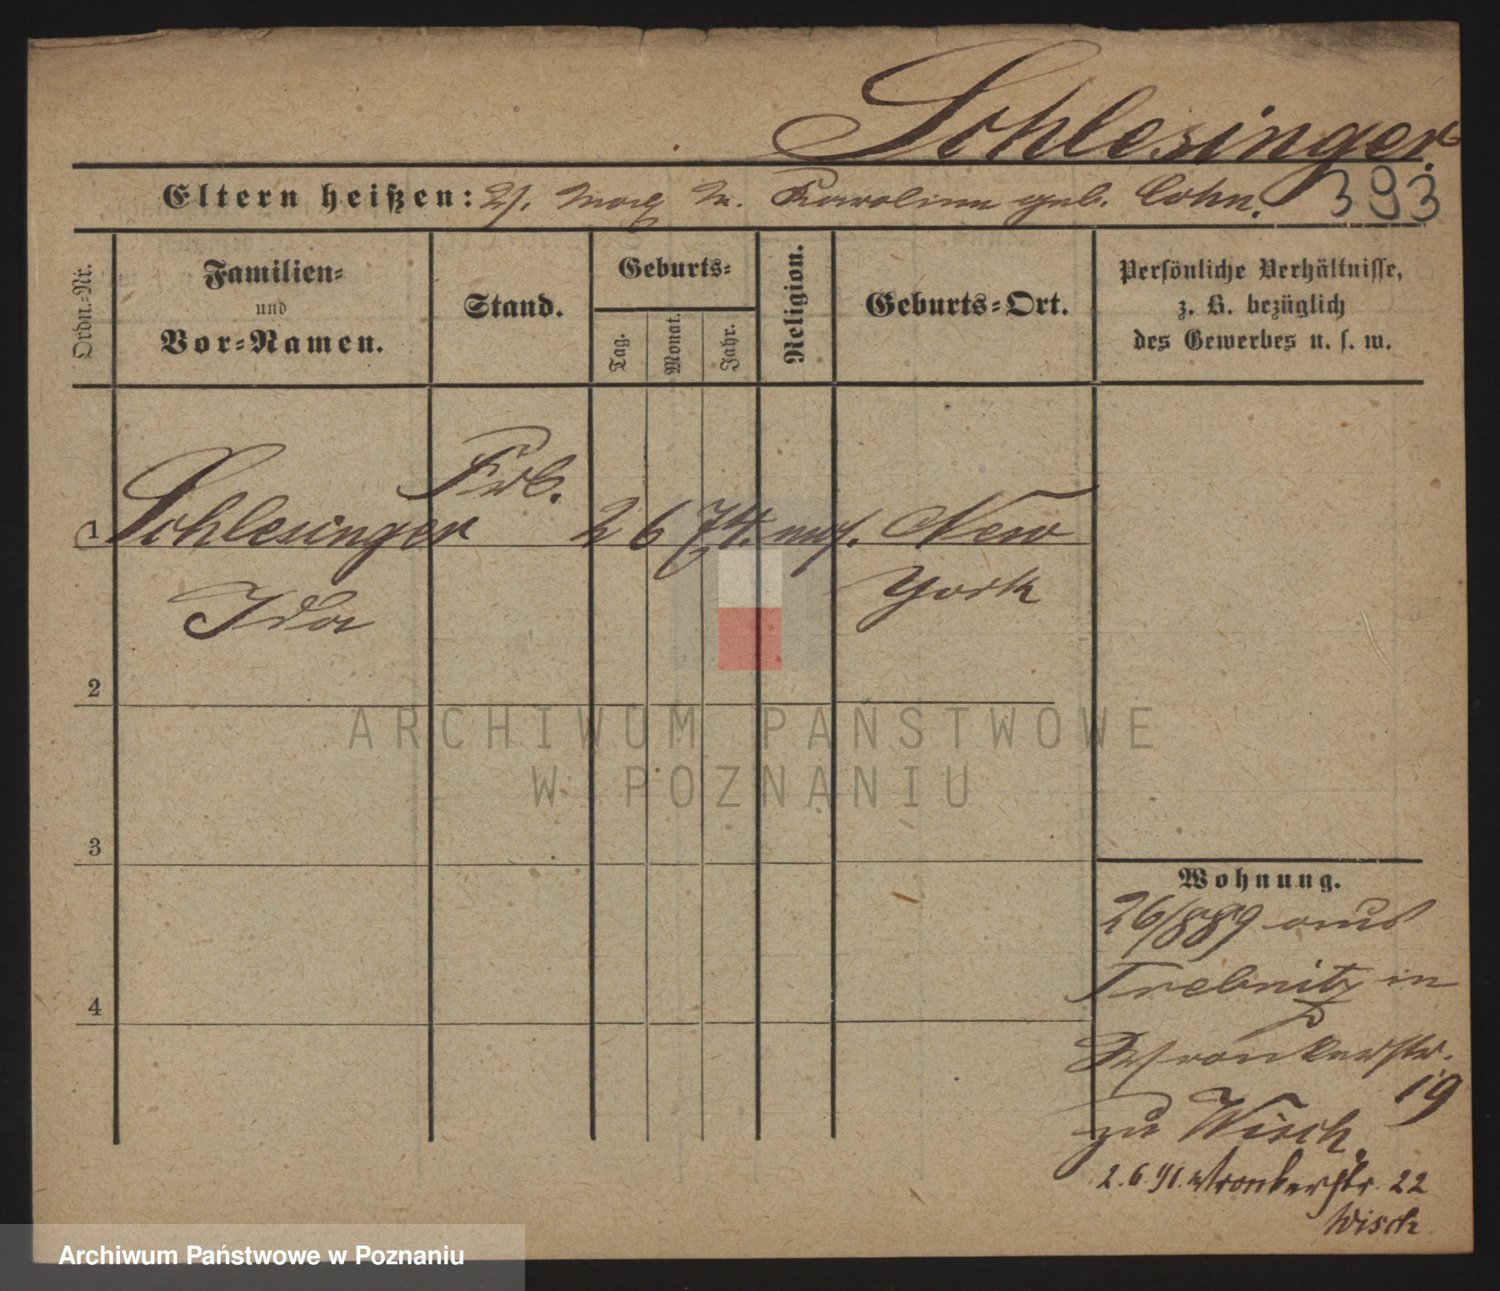 Schlesinger.
Eltern heißen: Karoline geb. Cohn. 393
Ordn.-Nr.
Familien-
und
Vor-Namen.
Stand.
Geburts-
Tag.
Monat.
Jahr.
Religion.
Geburts-Ort.
Persönliche Verhältnisse,
z. B. bezüglich
des Gewerbes u. s. w.
1 Schlesinger 2 6 74. mos. New
Ida York
2
3
4
Wohnung.
26/889 aus
Trebnitz in
Wronkerstr.
19
zu Wisch.
2.6.91. Wronkerstr. 22
Wisch
ARCHIWUM PAŃSTWOWE
W POZNANIU
Archiwum Państwowe w Poznaniu